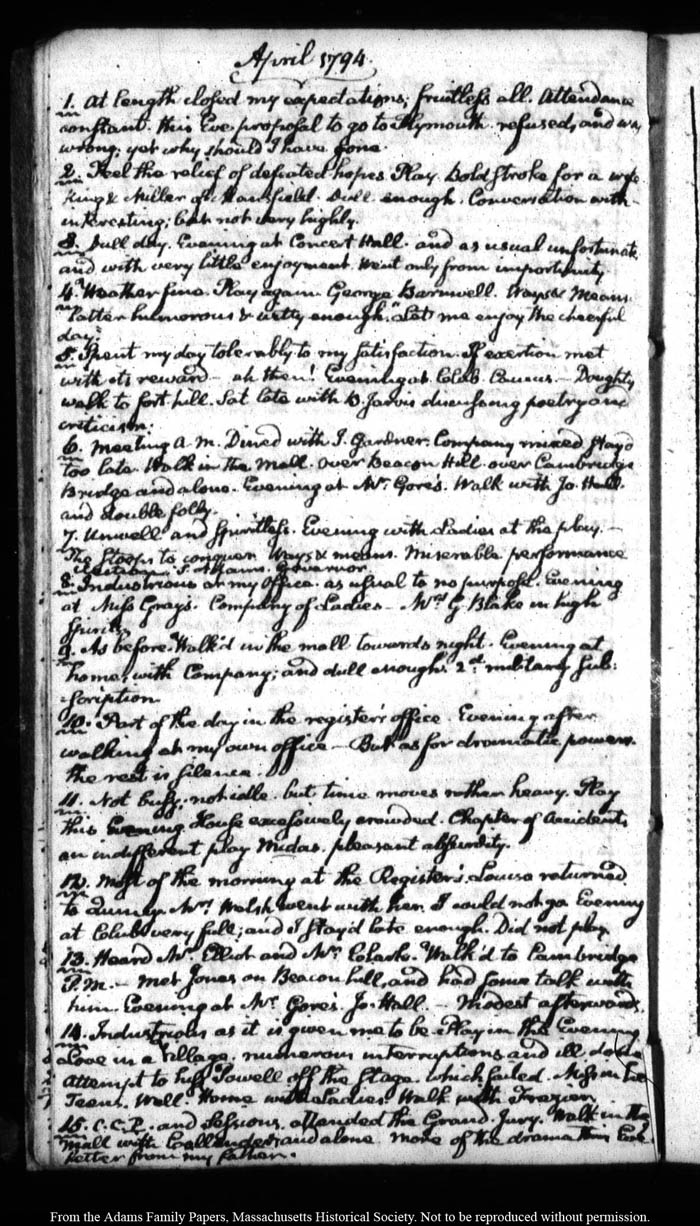 April 1794.
1. At length closed my expectations; fruitless all. Attendance
constant. this Eve. proposal to go to Plymouth. refused, and was
wrong; yet why should I have gone.
2. Feel the relief of defeated hopes Play. Bold Stroke for a wife
King & Miller of Mansfield. Dull enough. Conversation with
interesting; but not very highly.
3. Dull day. Evening at Concert Hall. and as usual unfortunate
and with very little enjoyment. Went only from importunity
4. Weather fine. Play again. George Barnwell. Ways & Means.
latter humorous & witty enough. Let me enjoy the cheerful
day.
5. Spent my day tolerably to my satisfaction. If exertion met
with its reward — ah then! Evening at Club. Caucus. — Doughty
walk to fort hill. Sat late with B. Jarvis discussing poetry and
criticism.
6. Meeting A.M. Dined with J. Gardner. Company mixed stay'd
too late. Walk in the Mall. over Beacon Hill. over Cambridge
Bridge and alone. Evening at Mr. Gore's. Walk with Jo. Hall.
and double folly.
7. Unwell and Spiritless. Evening with Ladies at the play. —
The Stoops to conquer Ways & means. Miserable performance
Election S. Adams. Governor.
8. Industrious at my Office. as usual to no purpose. Evening
at Miss Gray's. Company of Ladies — Mrs. G Blake in high
Spirits.
9. As before. Walk'd in the mall towards night. Evening at
home, with Company; and dull enough. 2d. military sub:
scription
10. Part of the day in the register's office. Evening after
walking at my own office — But as for dramatic powers.
the rest is silence.
11. Not busy, not idle. but time moves rather heavy. Play
this Evening. House excessively crowded. Chapter of Accidents
an indifferent play Midas. pleasant absurdity.
12. Most of the morning at the Register's. Louisa returned
to Quincy. Mrs. Welsh went with her. I could not go Evening
at Club very full; and I stay'd late enough. Did not play.
13. Heard Mr. Elliot and Mr. Clarke. Walk'd to Cambridge
P.M. — met Jones on Beacon hill, and had some talk with
him. Evening at Mr. Gore's. Jo. Hall. — Modest afterwards.
14. Industrious as it is given me to be. Play in the Evening
Love in a Village. numerous interruptions and ill done
attempt to hiss Powell off the Stage. which failed. Miss in her
Teens. Well. Home with Ladies Walk with Frazier
15. C.C.P. and Sessions. attended the Grand Jury. Walk in the
mall with Callender, and alone. more of the drama this Eve.
Letter from my father.
From the Adams Family Papers, Massachusetts Historical Society. Not to be reproduced without permission.